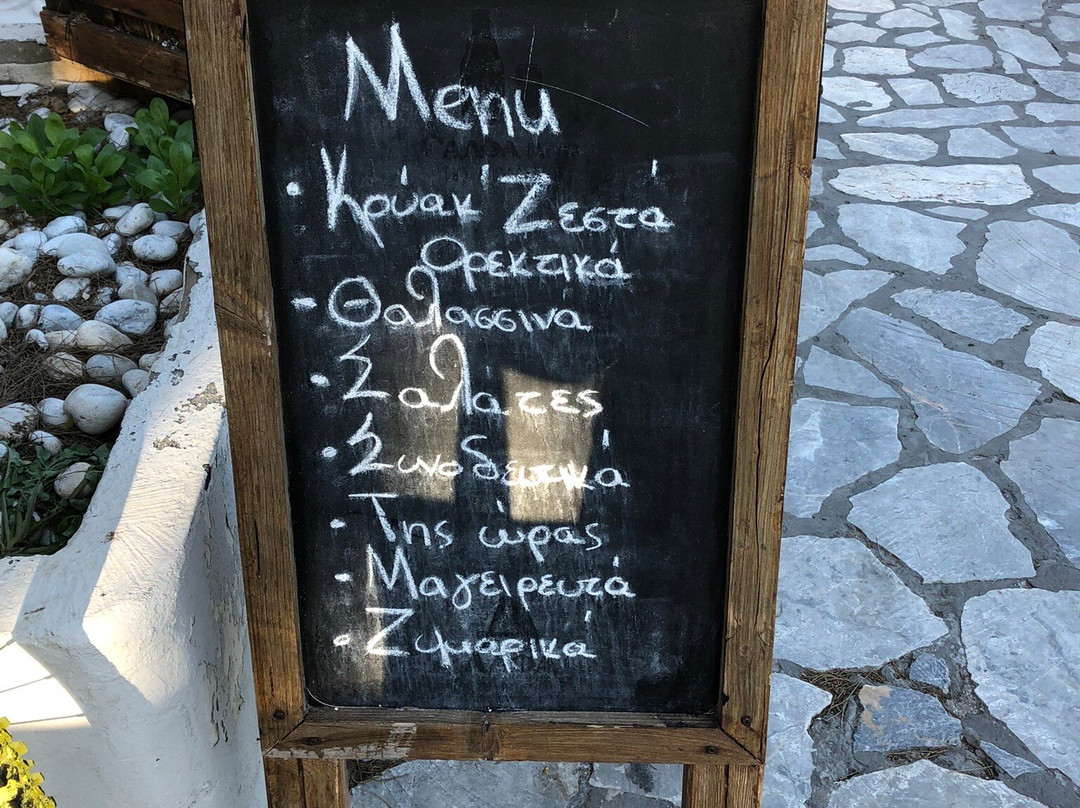 Menu
· Κρύα κ' Ζεστά
Ορεκτικά
· Θαλασσινά
· Σαλάτες
· Συνοδευτικά
· Της ώρας
· Μαγειρευτά
· Ζυμαρικά